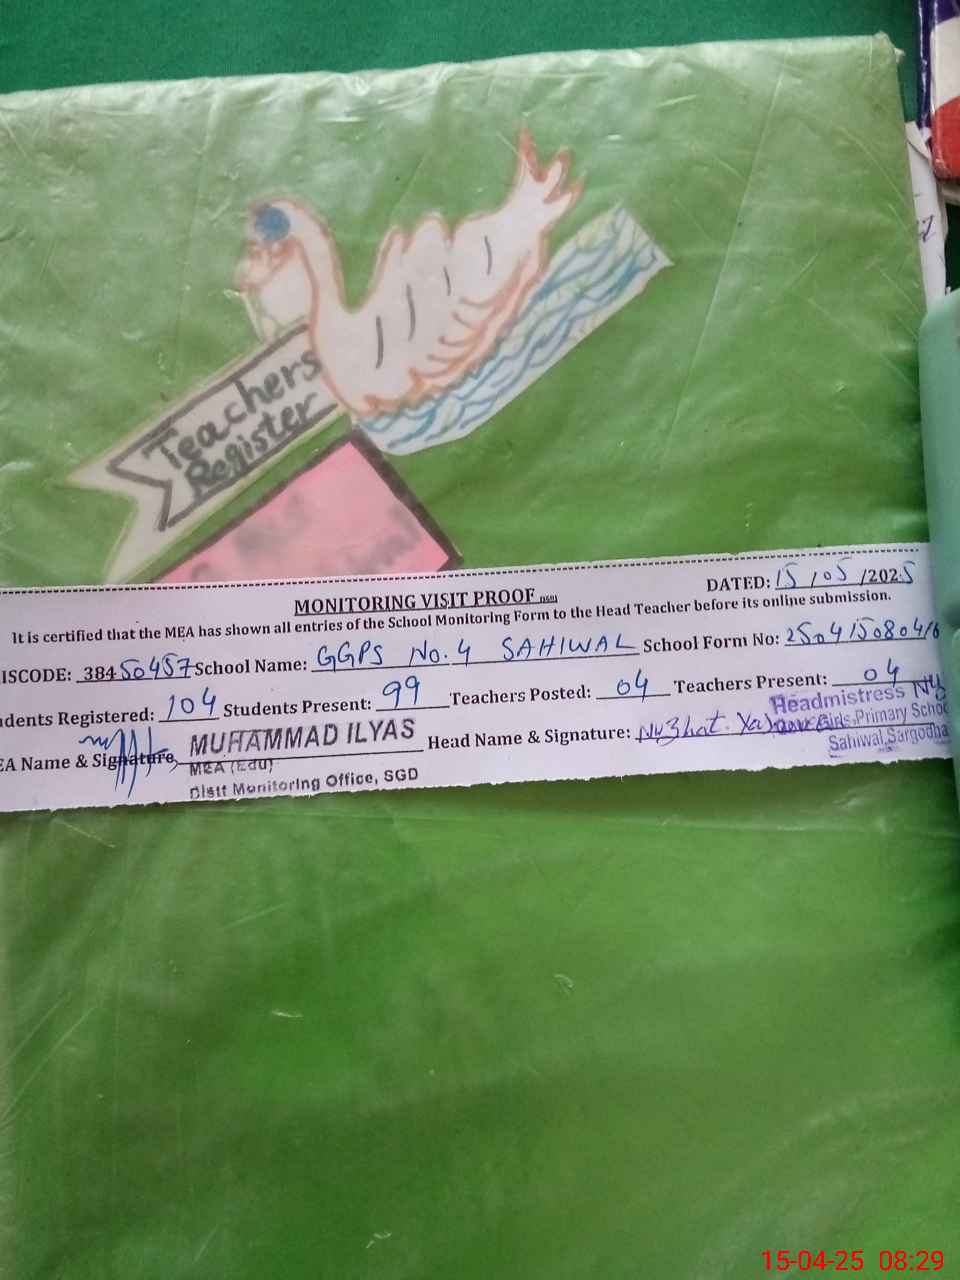 Teachers
Register
MONITORING VISIT PROOF
DATED: 15/05/2025
It is certified that the MEA has shown all entries of the School Monitoring Form to the Head Teacher before its online submission.
ISCODE: 38450457 School Name: GGPS No. 4 SAHIWAL School Form No: 250415080416
dents Registered: 104 Students Present: 99 Teachers Posted: 04 Teachers Present: 04
EA Name & Signature MUHAMMAD ILYAS Head Name & Signature: Nuzhat
MEA (Edu)
Distt Monitoring Office, SGD
Headmistress
Girls Primary Schoo
Sahiwal, Sargodha
15-04-25 08:29